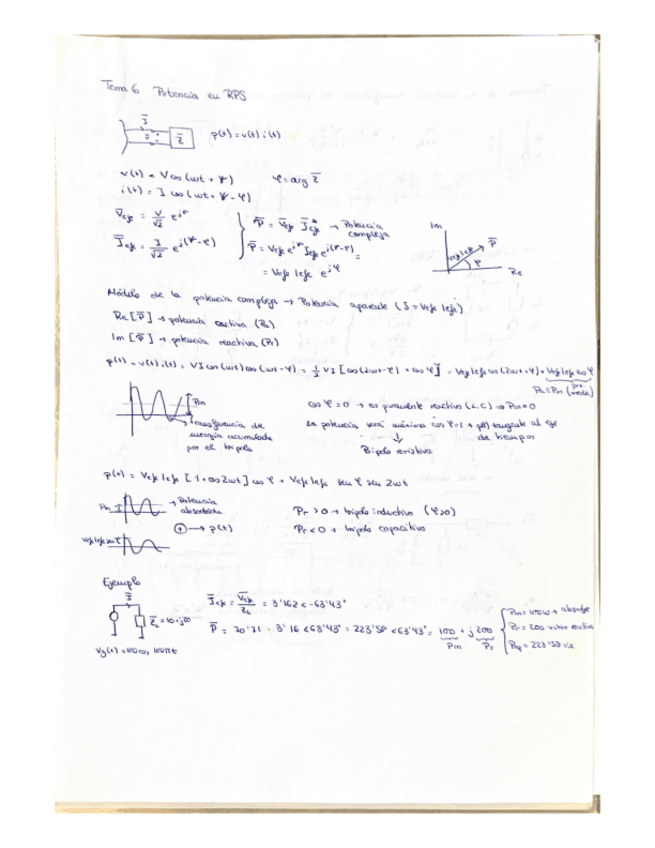 Tema 6 Potencia en RPS
I
Z
p(t) = v(t) i(t)
v(t) = V cos (ωt + Ψ)
φ = arg Z̄
i(t) = I cos (ωt + Ψ - φ)
V̄efe = V/√2 e^jΨ
Īefe = I/√2 e^j(Ψ-φ)
P̄ = V̄efe Ī*efe → Potencia compleja
P̄ = Vefe e^jΨ Iefe e^j(Ψ-φ) =
= Vefe Iefe e^jφ
Im
P̄
Vefe Iefe
φ
Re
Módulo de la potencia compleja → Potencia aparente (S = Vefe Iefe)
Re [P̄] → potencia activa (Pa)
Im [P̄] → potencia reactiva (Pr)
p(t) = v(t) i(t) = VI cos(ωt) cos(ωt-φ) = 1/2 VI [cos(2ωt-φ) + cos φ] = Vefe Iefe cos(2ωt-φ) + Vefe Iefe cos φ
Pa = Pm (pot. media)
Pm
Transferencia de
energía acumulada
por el bipolo
cos φ = 0 → es puramente reactivo (L, C) ⇒ Pm = 0
La potencia será máxima cos φ = 1 → p(t) tangente al eje
de tiempos
Bipolo resistivo
p(t) = Vefe Iefe [1 + cos 2ωt] cos φ + Vefe Iefe sen φ sen 2ωt
Pm
→ Potencia
absorbida
+ → p(t)
Vefe Iefe sen φ
Pr > 0 → bipolo inductivo (φ>0)
Pr < 0 → bipolo capacitivo
Ejemplo
I
Z̄L = 10 + j20
Vg(t) = 100 cos 100πt
Īefe = V̄efe/ZL = 3'162 < -63'43°
P̄ = 70'71 · 3'16 < 63'43° = 223'58 < 63'43° = 100 + j 200
Pm
Pr
Pm = 100 W → absorbe
Pr = 200
Pap = 223'58 VA